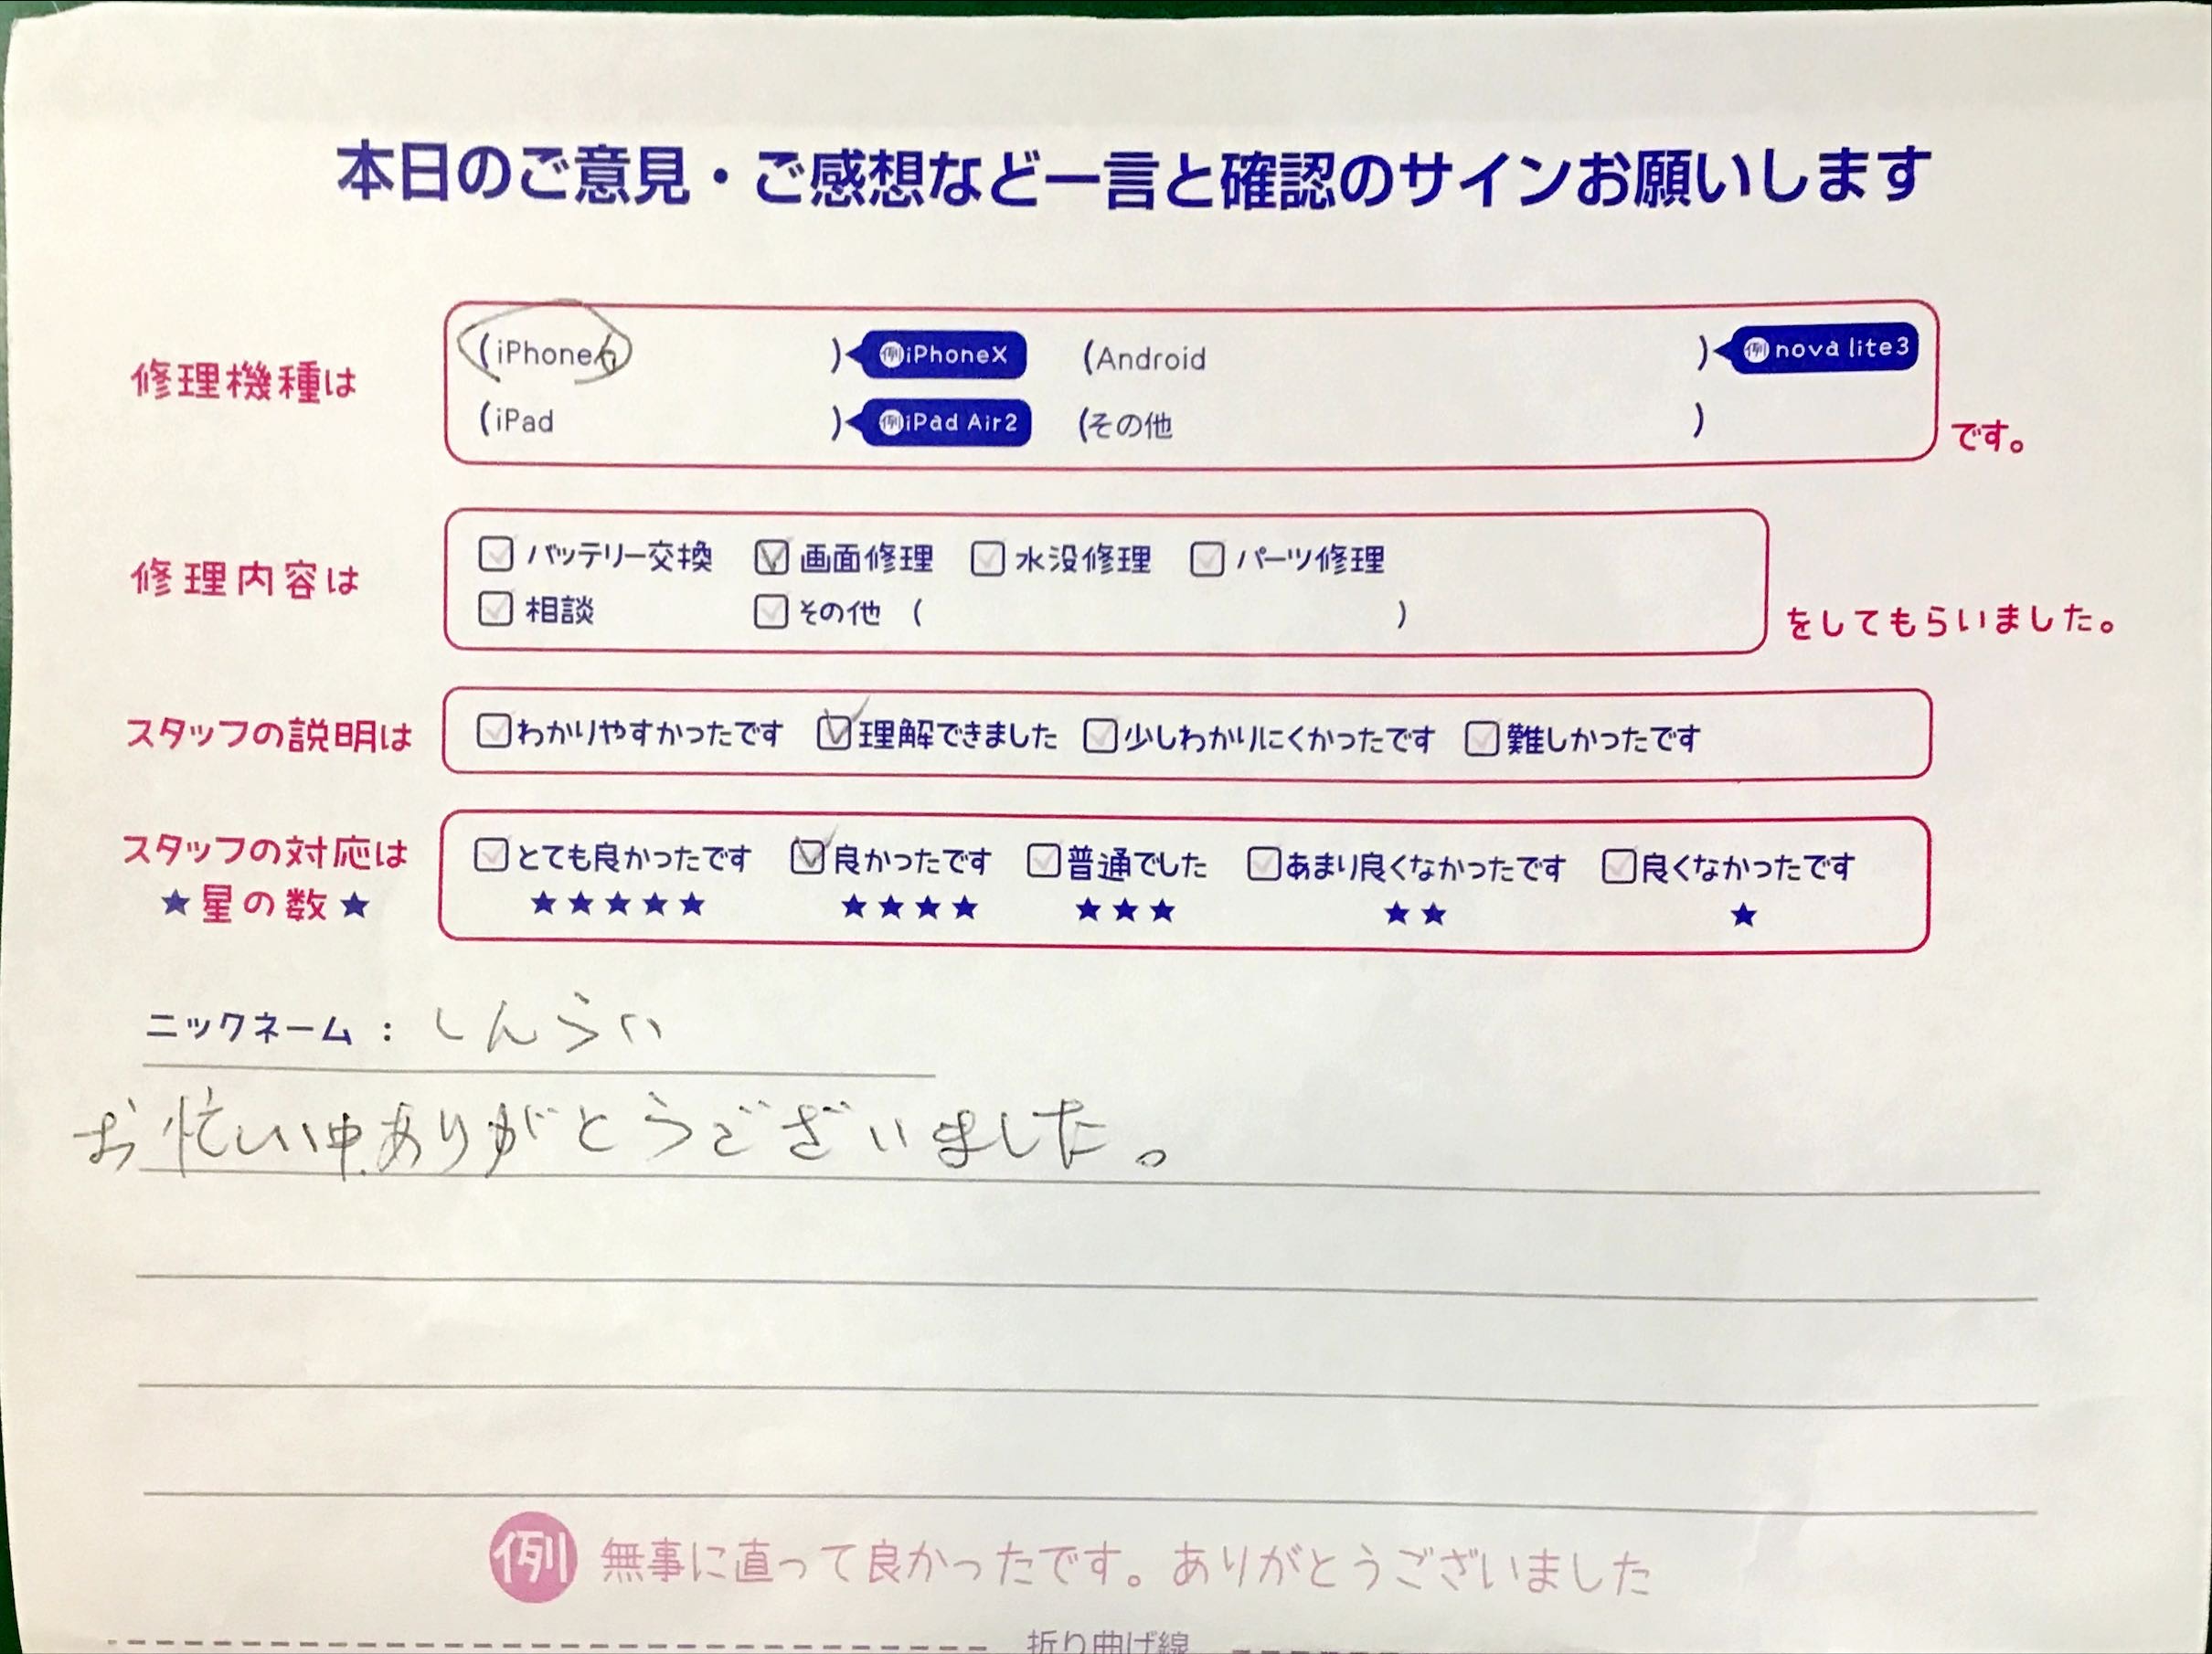 本日のご意見・ご感想など一言と確認のサインお願いします
修理機種は (iPhone6 ) 例iPhoneX (Android ) 例nova lite3
(iPad ) 例iPad Air2 (その他 ) です。
修理内容は バッテリー交換 画面修理 水没修理 パーツ修理
相談 その他 ( ) をしてもらいました。
スタッフの説明は わかりやすかったです 理解できました 少しわかりにくかったです 難しかったです
スタッフの対応は とても良かったです 良かったです 普通でした あまり良くなかったです 良くなかったです
★星の数★ ★★★★★ ★★★★ ★★★ ★★ ★
ニックネーム : しんらい
お忙しい中ありがとうございました。
例 無事に直って良かったです。ありがとうございました
折り曲げ線